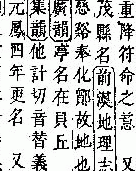 重降符命之意 又
茂縣名前漢地理志
故地也
廣韻亭名在貝丘
集韻他計切音替義
元鳳四年更名 又